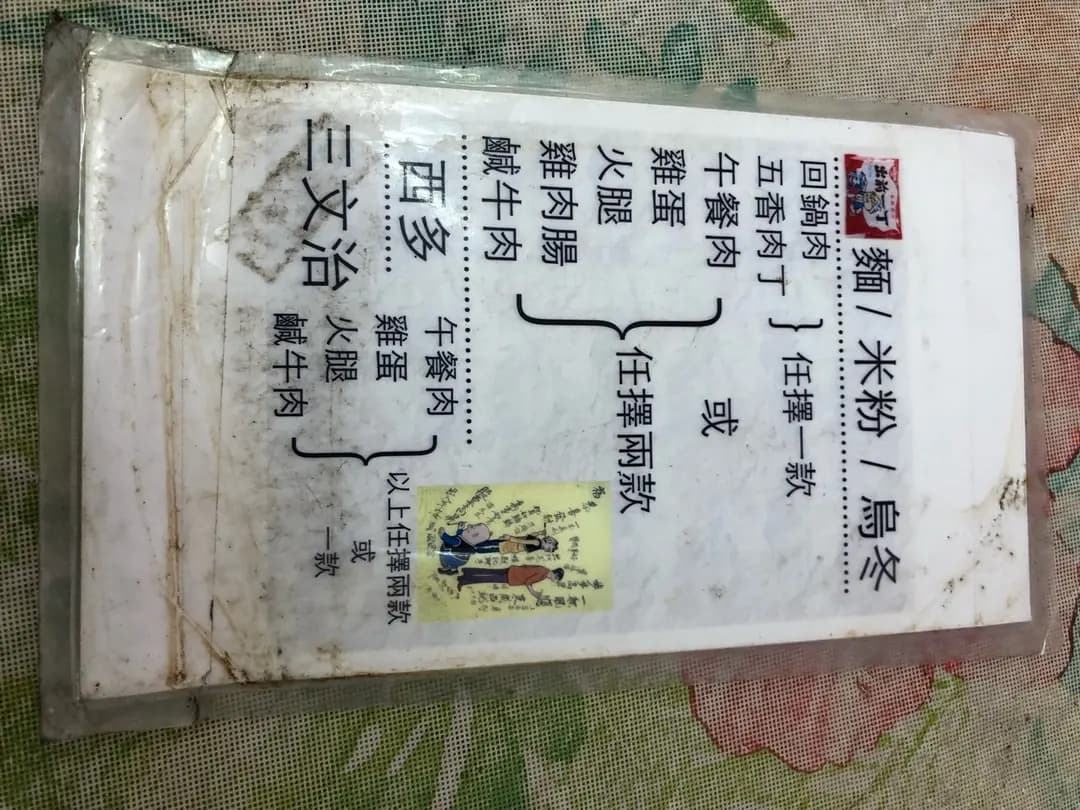 出前一丁 麵 / 米粉 / 烏冬
回鍋肉
五香肉丁
任擇一款
或
午餐肉
雞蛋
火腿
雞肉腸
鹹牛肉
任擇兩款
西多
三文治
午餐肉
雞蛋
火腿
鹹牛肉
以上任擇兩款
或
一款